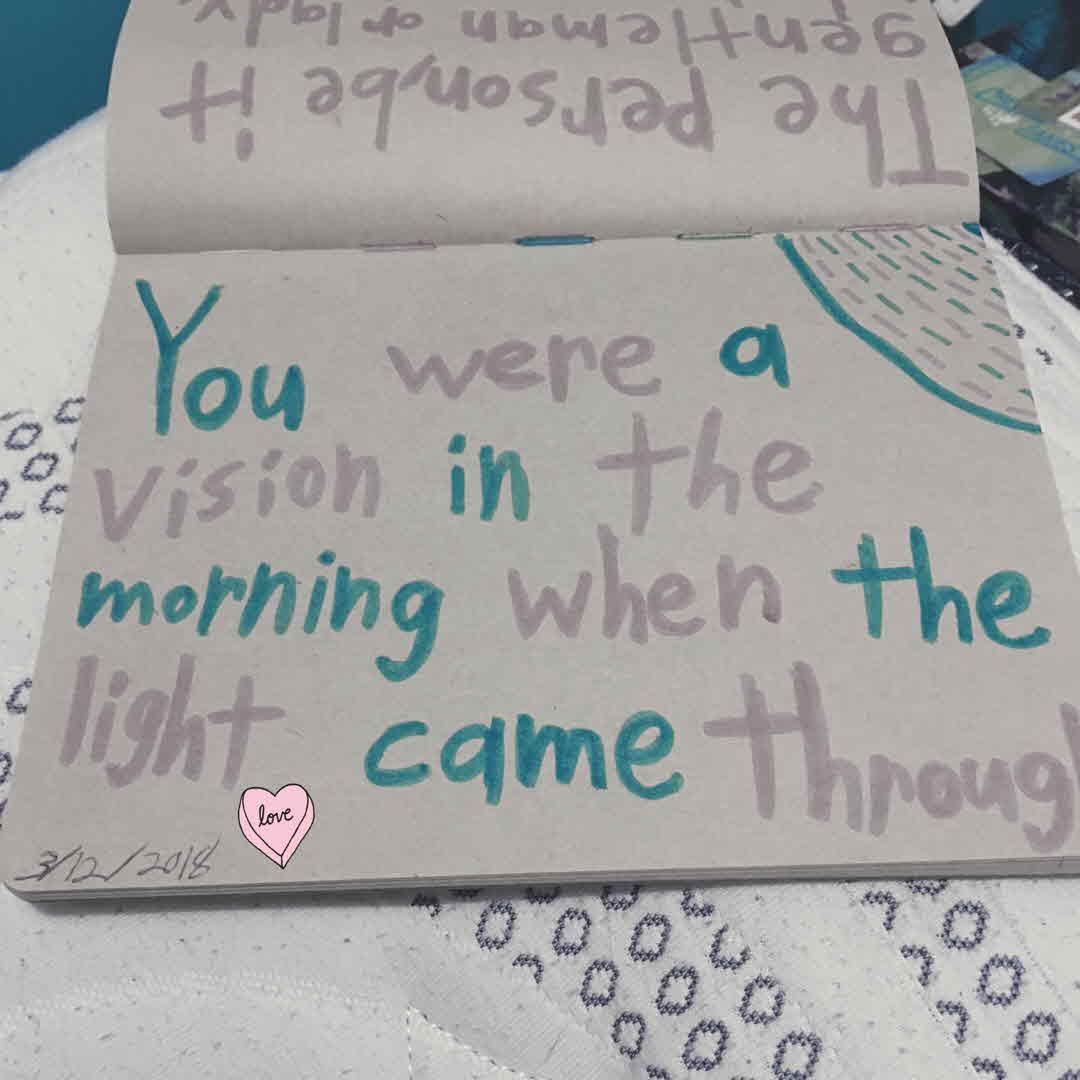 The person, be it
gentleman or lady,
You were a
vision in the
morning when the
light came through
love
3/12/2018